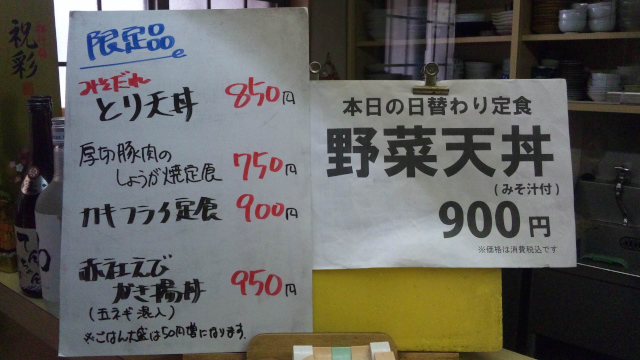 限定品
みそだれ
とり天丼 850円
厚切豚肉の
しょうが焼定食 750円
カキフライ定食 900円
赤社えび
かき揚丼 950円
(玉ネギ混入)
※ごはん大盛は50円増になります。
本日の日替わり定食
野菜天丼
(みそ汁付)
900円
※価格は消費税込です
祝彩